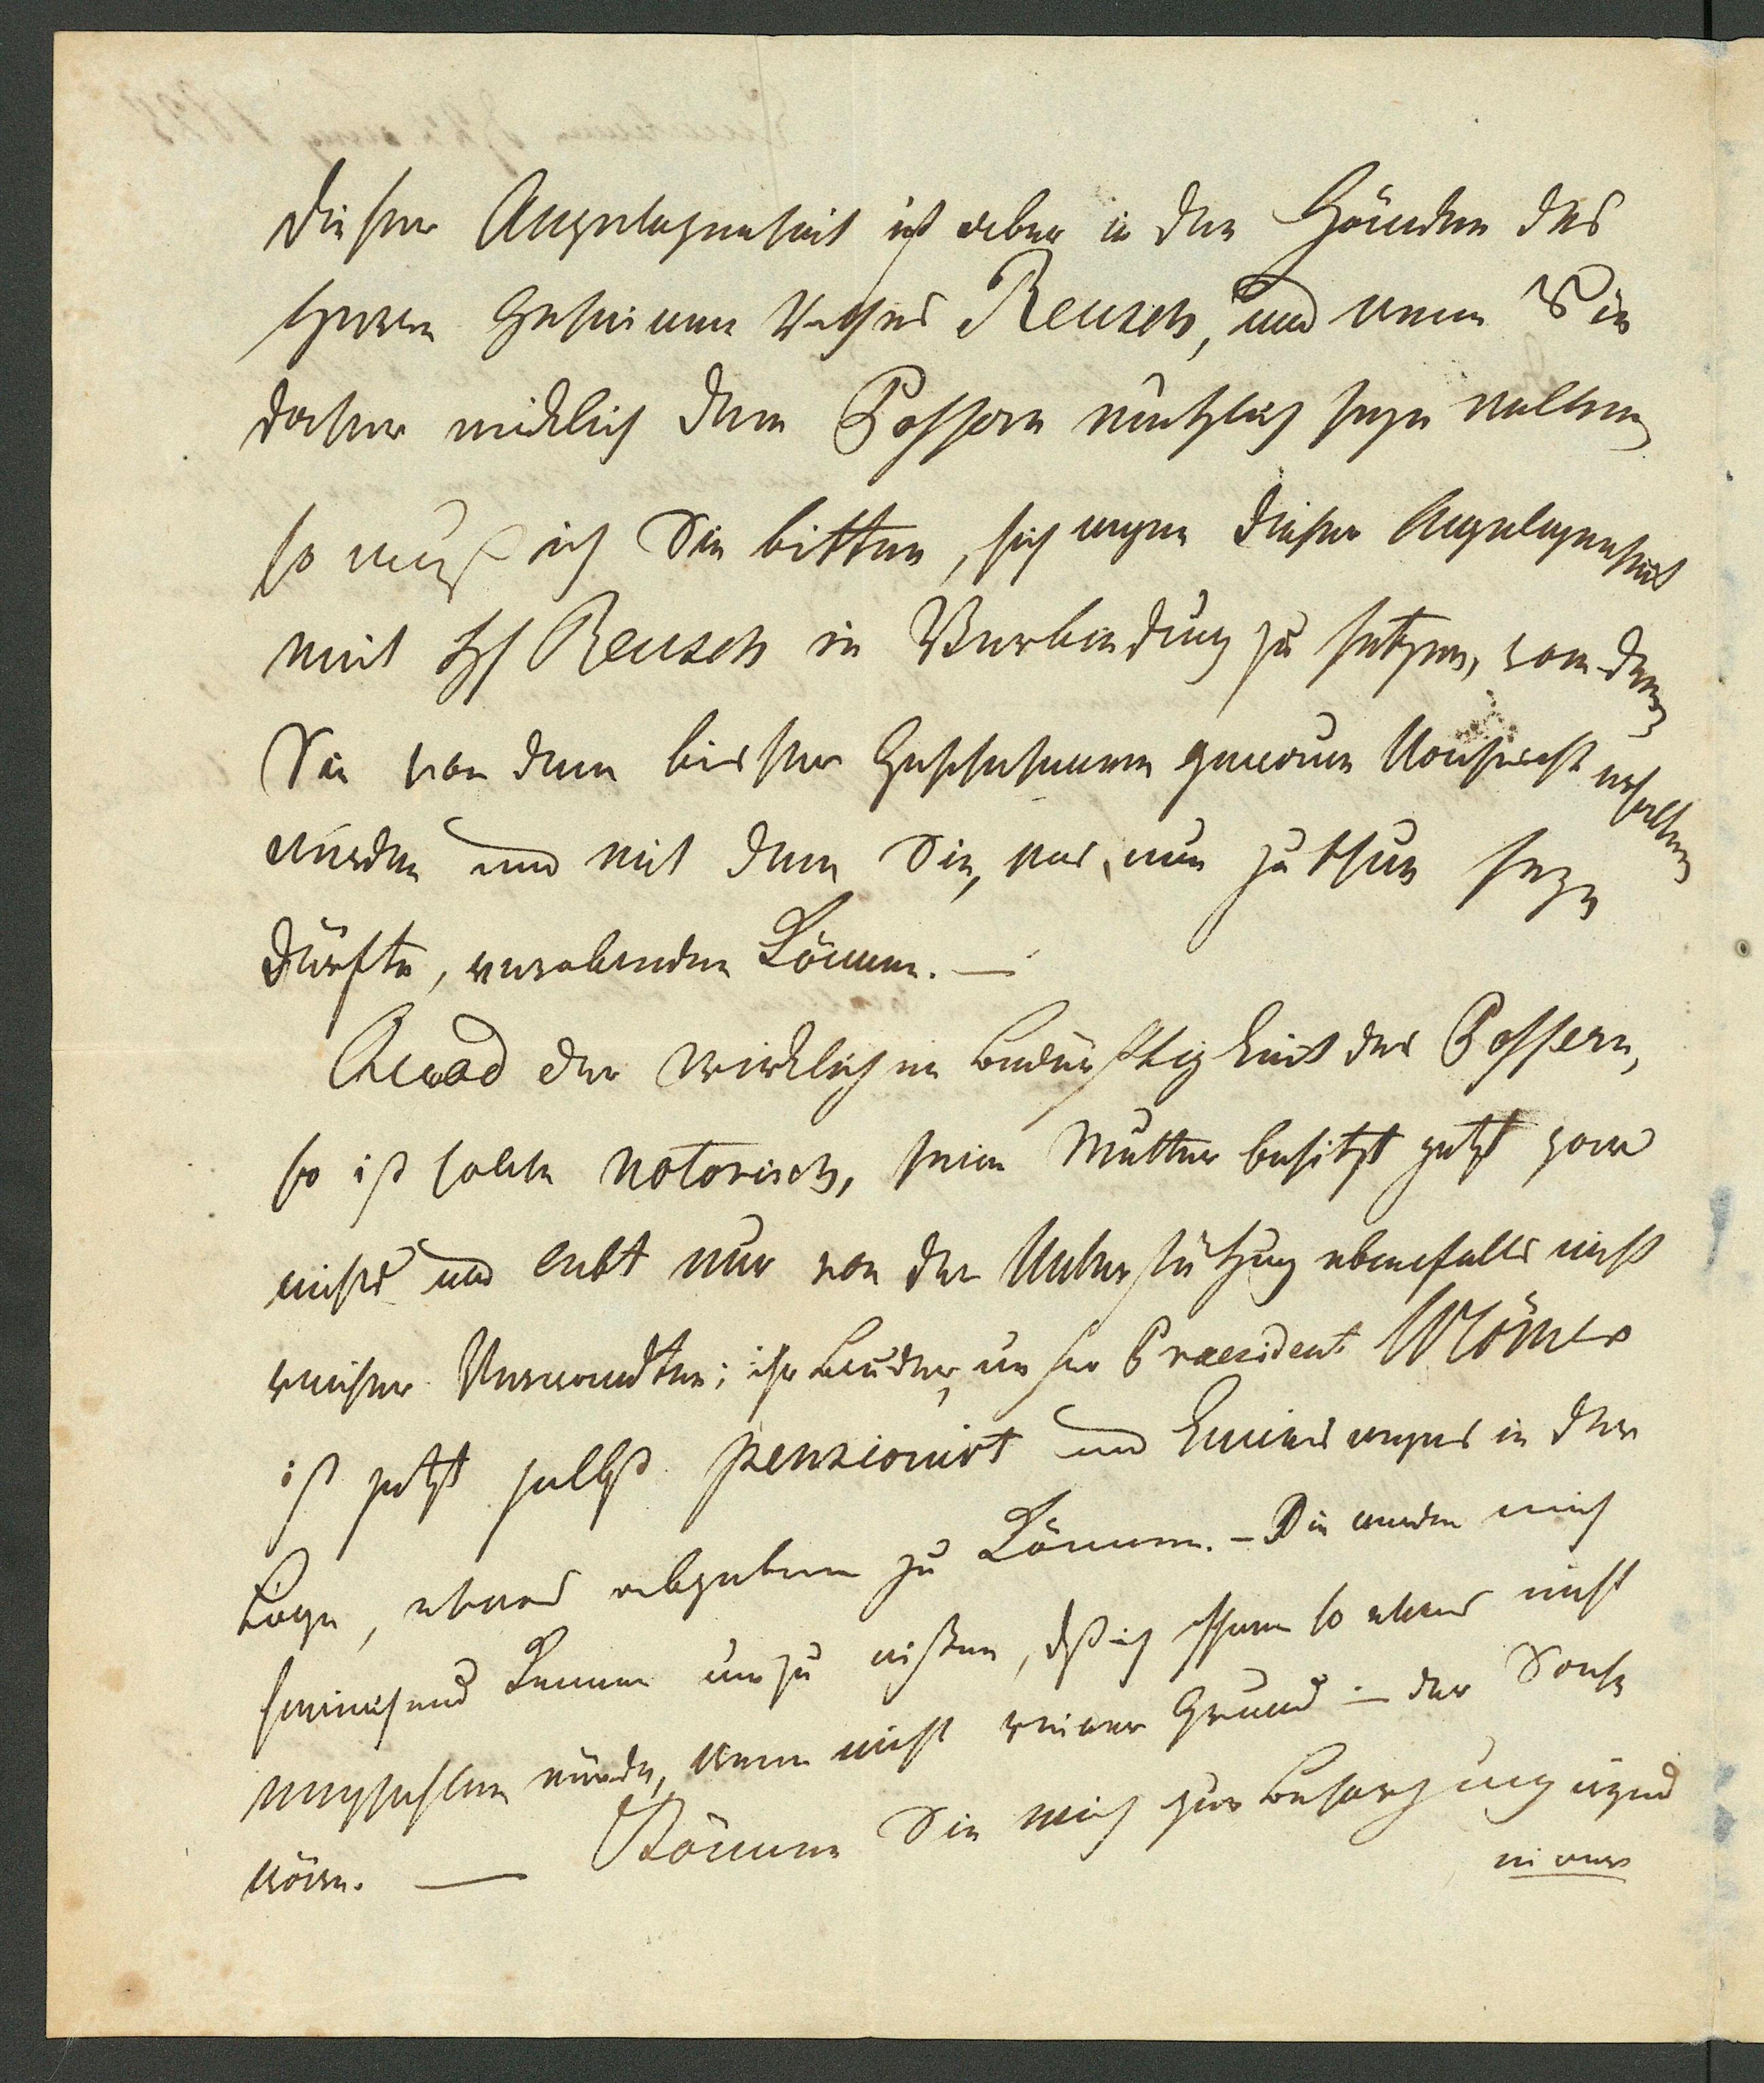 dieser Angelegenheit ist aber in den Händen des
Herrn Geheimen Rathes Reusch, und wenn Sie
daher wirklich dem Possern nützlich seyn wollen
so muß ich Sie bitten, sich wegen dieser Angelegenheit
mit HE Reusch in Verbindung zu setzen, von dem
Sie von dem bisher Geschehenen genaue Nachricht erhalten
werden und mit dem Sie, was nun zu thun seyn
dürfte, verabreden können. —
Quoad der wirklichen Bedürftigkeit des Possern,
so ist solche notorisch, seine Mutter besitzt jetzt gar
nichts und lebt nur von der Unterstützung ebenfalls nicht
reicher Verwandten; ihr Bruder, unser Praesident Mörner
ist jetzt selbst pensionirt und keinesweges in der
Lage, etwas abgeben zu können. – Sie werden mich
hinreichend kennen um zu wißen, dß ich Ihnen so etwas nicht
empfehlen würde, wenn nicht reiner Grund in der Sache
wäre. — Können Sie mich zur Besorgung irgend